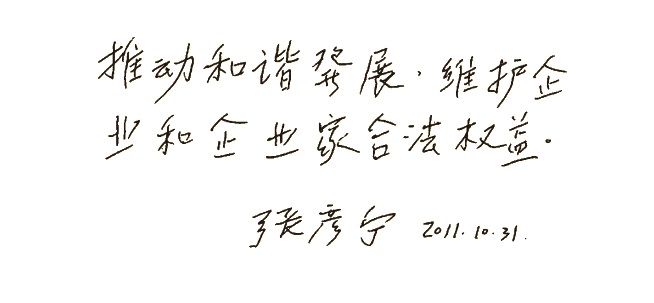 推动和谐發展，维护企
业和企业家合法权益。
张彦宁 2011.10.31.